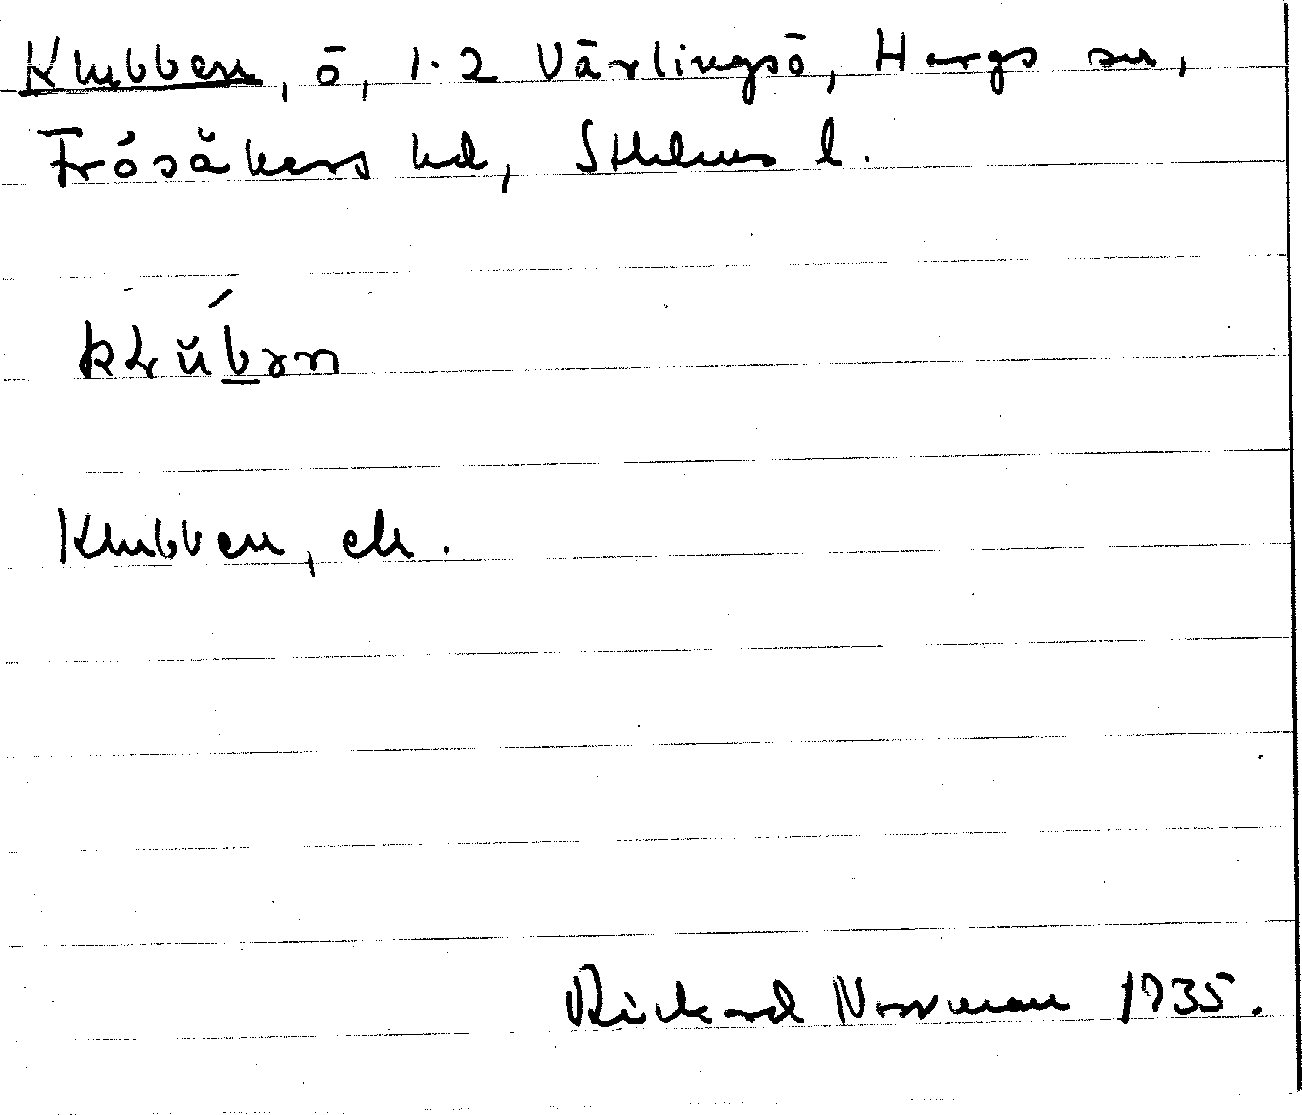 Klubben, ö, 1.2 Värlingsö, Hargs sn,
Frösåkers hd, Sthlms l.
Klubben, ek.
Rickard Norrman 1935.